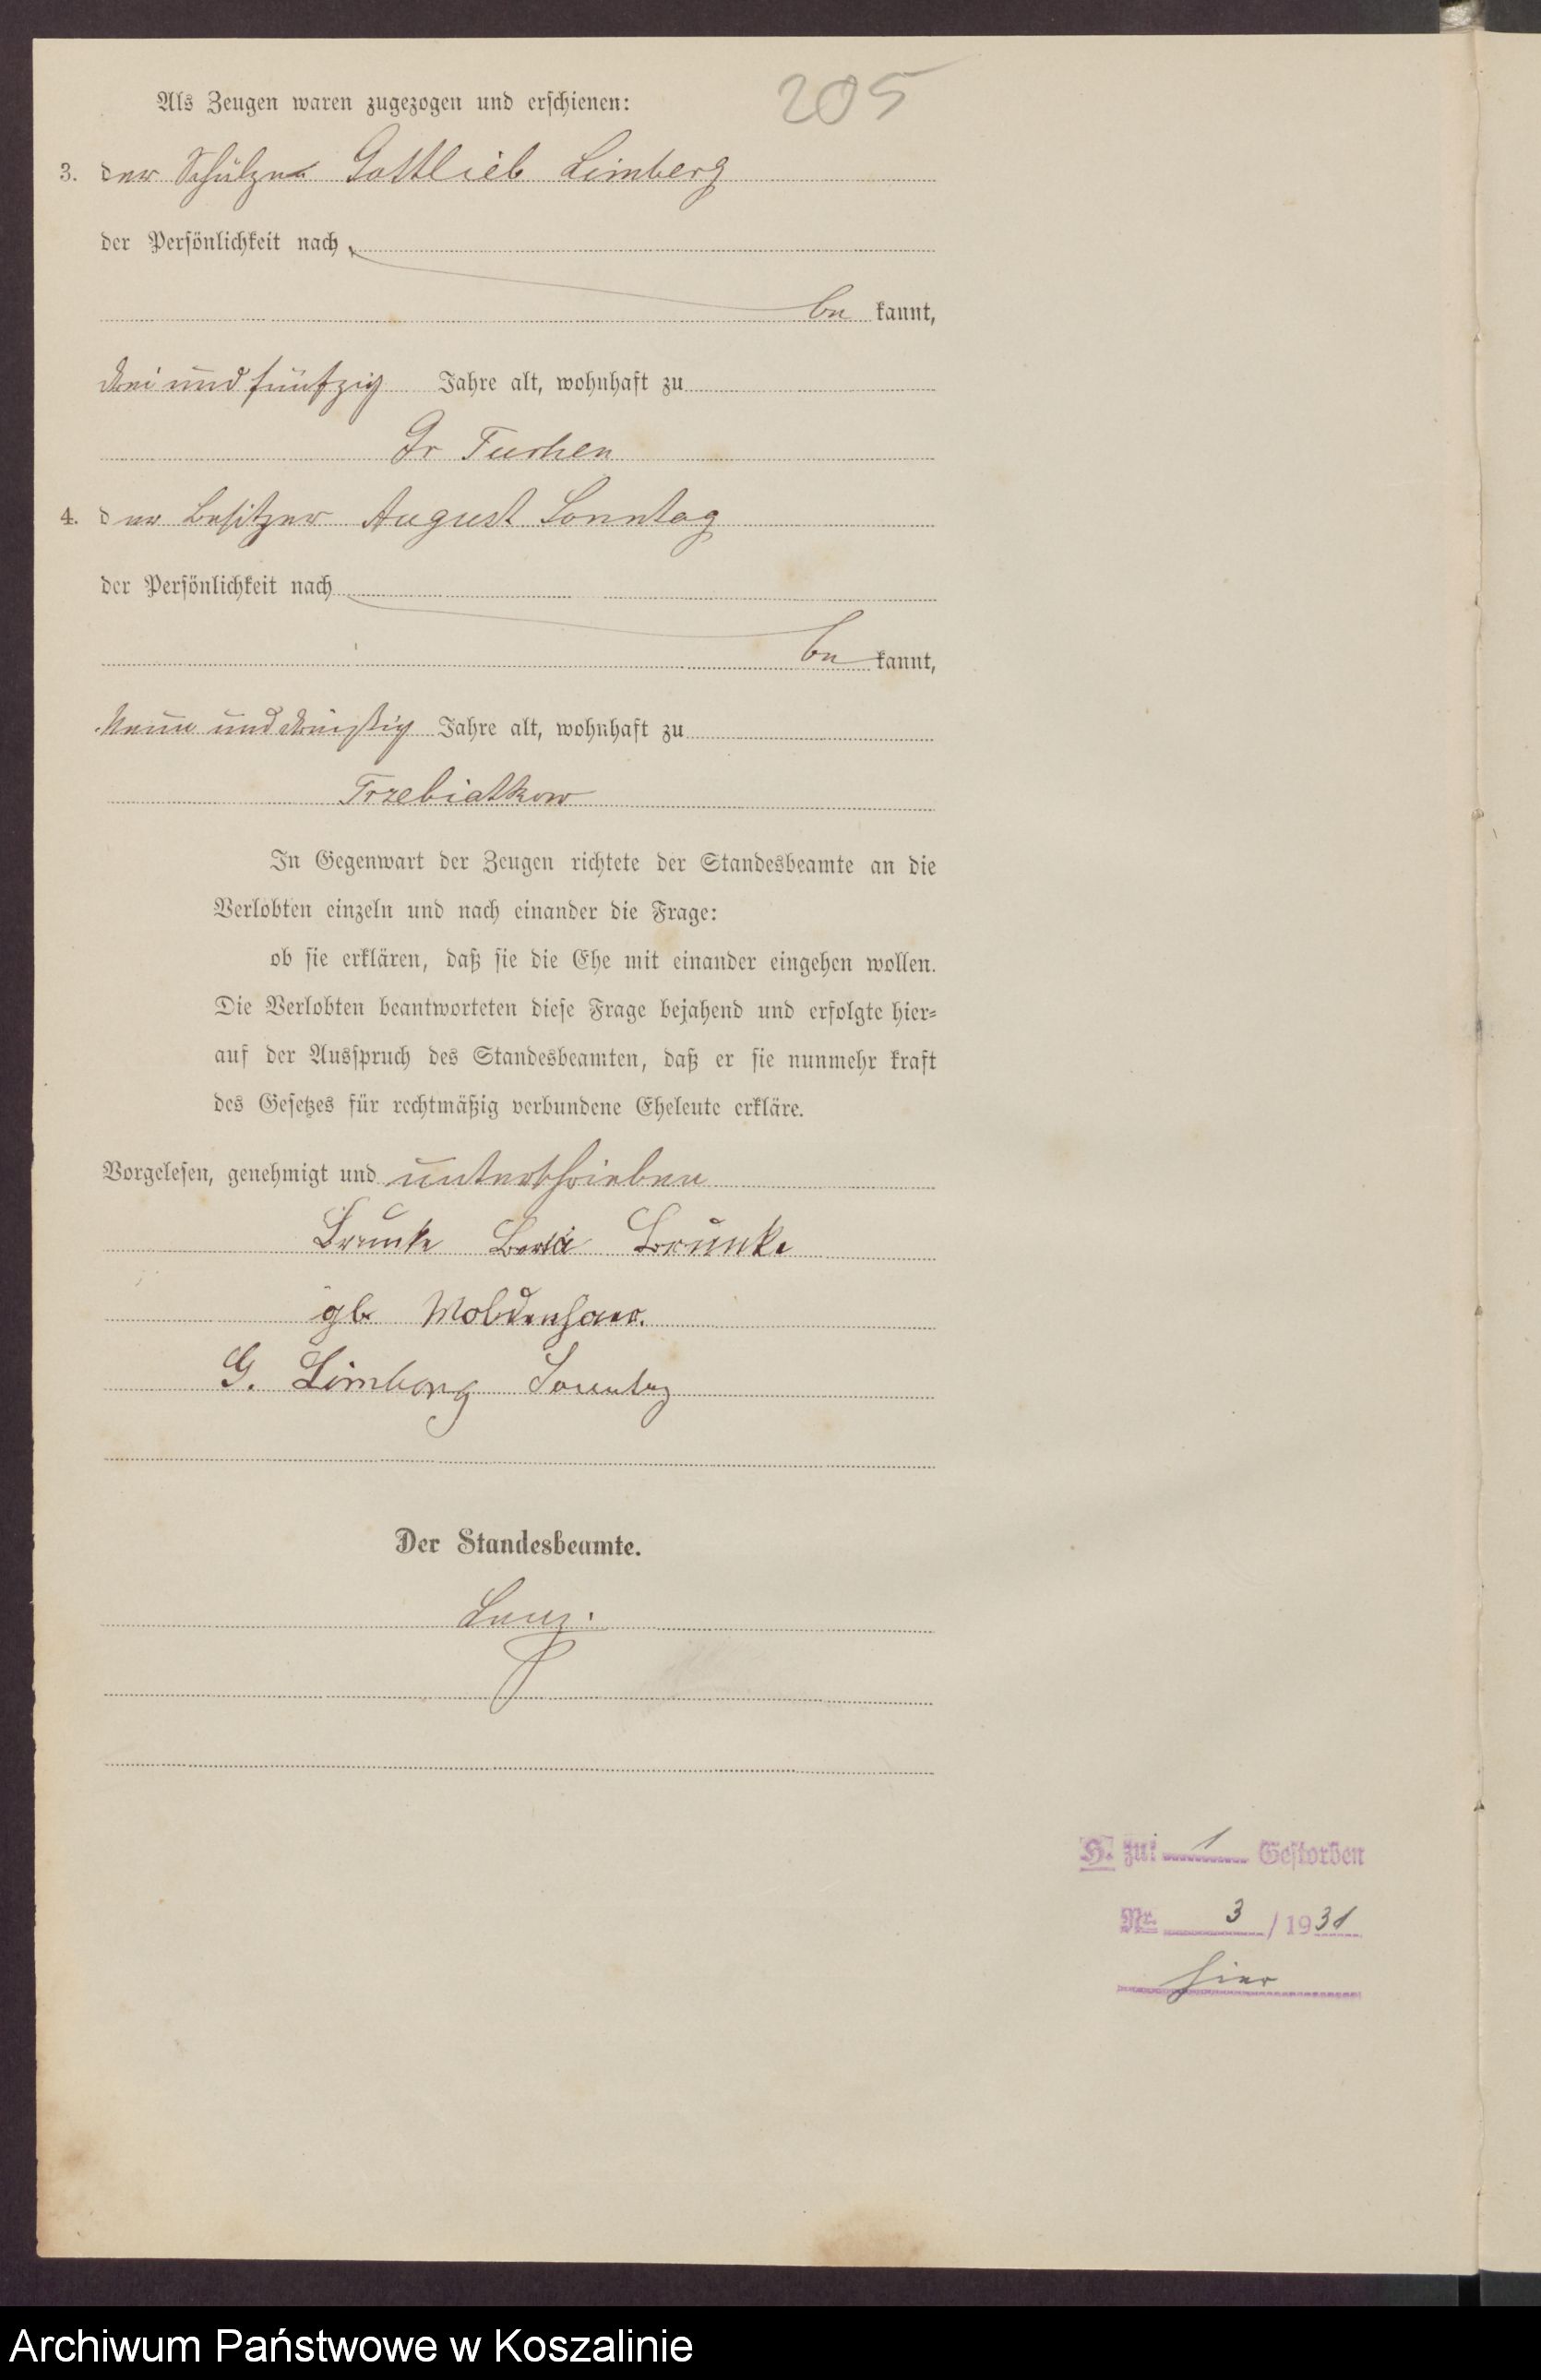 205
Als Zeugen waren zugezogen und erschienen:
3. der Schulze Gottlieb Limberg
der Persönlichkeit nach
be kannt,
drei und fünfzig Jahre alt, wohnhaft zu
Gr Tuchen
4. der Besitzer August Sonntag
der Persönlichkeit nach
be kannt,
neun und dreißig Jahre alt, wohnhaft zu
Trzebiatkow
In Gegenwart der Zeugen richtete der Standesbeamte an die
Verlobten einzeln und nach einander die Frage:
ob sie erklären, daß sie die Ehe mit einander eingehen wollen.
Die Verlobten beantworteten diese Frage bejahend und erfolgte hier-
auf der Ausspruch des Standesbeamten, daß er sie nunmehr kraft
des Gesetzes für rechtmäßig verbundene Eheleute erkläre.
Vorgelesen, genehmigt und unterschrieben
Brunke Brunke
gb Moldenhauer.
G. Limberg Sonntag
Der Standesbeamte.
H. zu: 1 Gestorben
Nr. 3 / 1931
hier
Archiwum Państwowe w Koszalinie